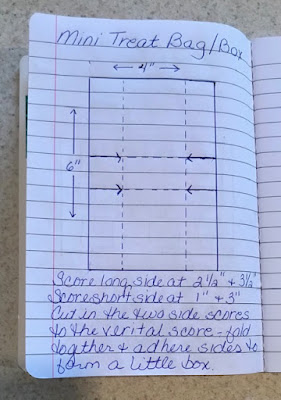 Mini Treat Bag/Box
4"
6"
Score long side at 2 1/2" & 3 1/2"
Score short side at 1" & 3"
Cut in the two side scores
to the verital score - fold
together & adhere sides to
form a little box.